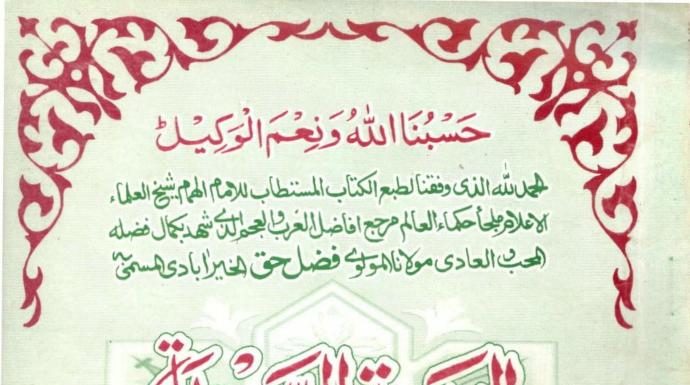 حَسْبُنَا اللّٰهُ وَنِعْمَ الْوَكِيْل
الحمد للہ الذی وفقنا لطبع الکتاب المستطاب للامام الہمام شیخ العلماء
الاعلام ملجأ حکماء العالم مرجع افاضل العرب والعجم الذی شہد بکمال فضلہ
المحب والعادی مولانا المولوی فضل حق الخیرابادی المسمیٰ بہ